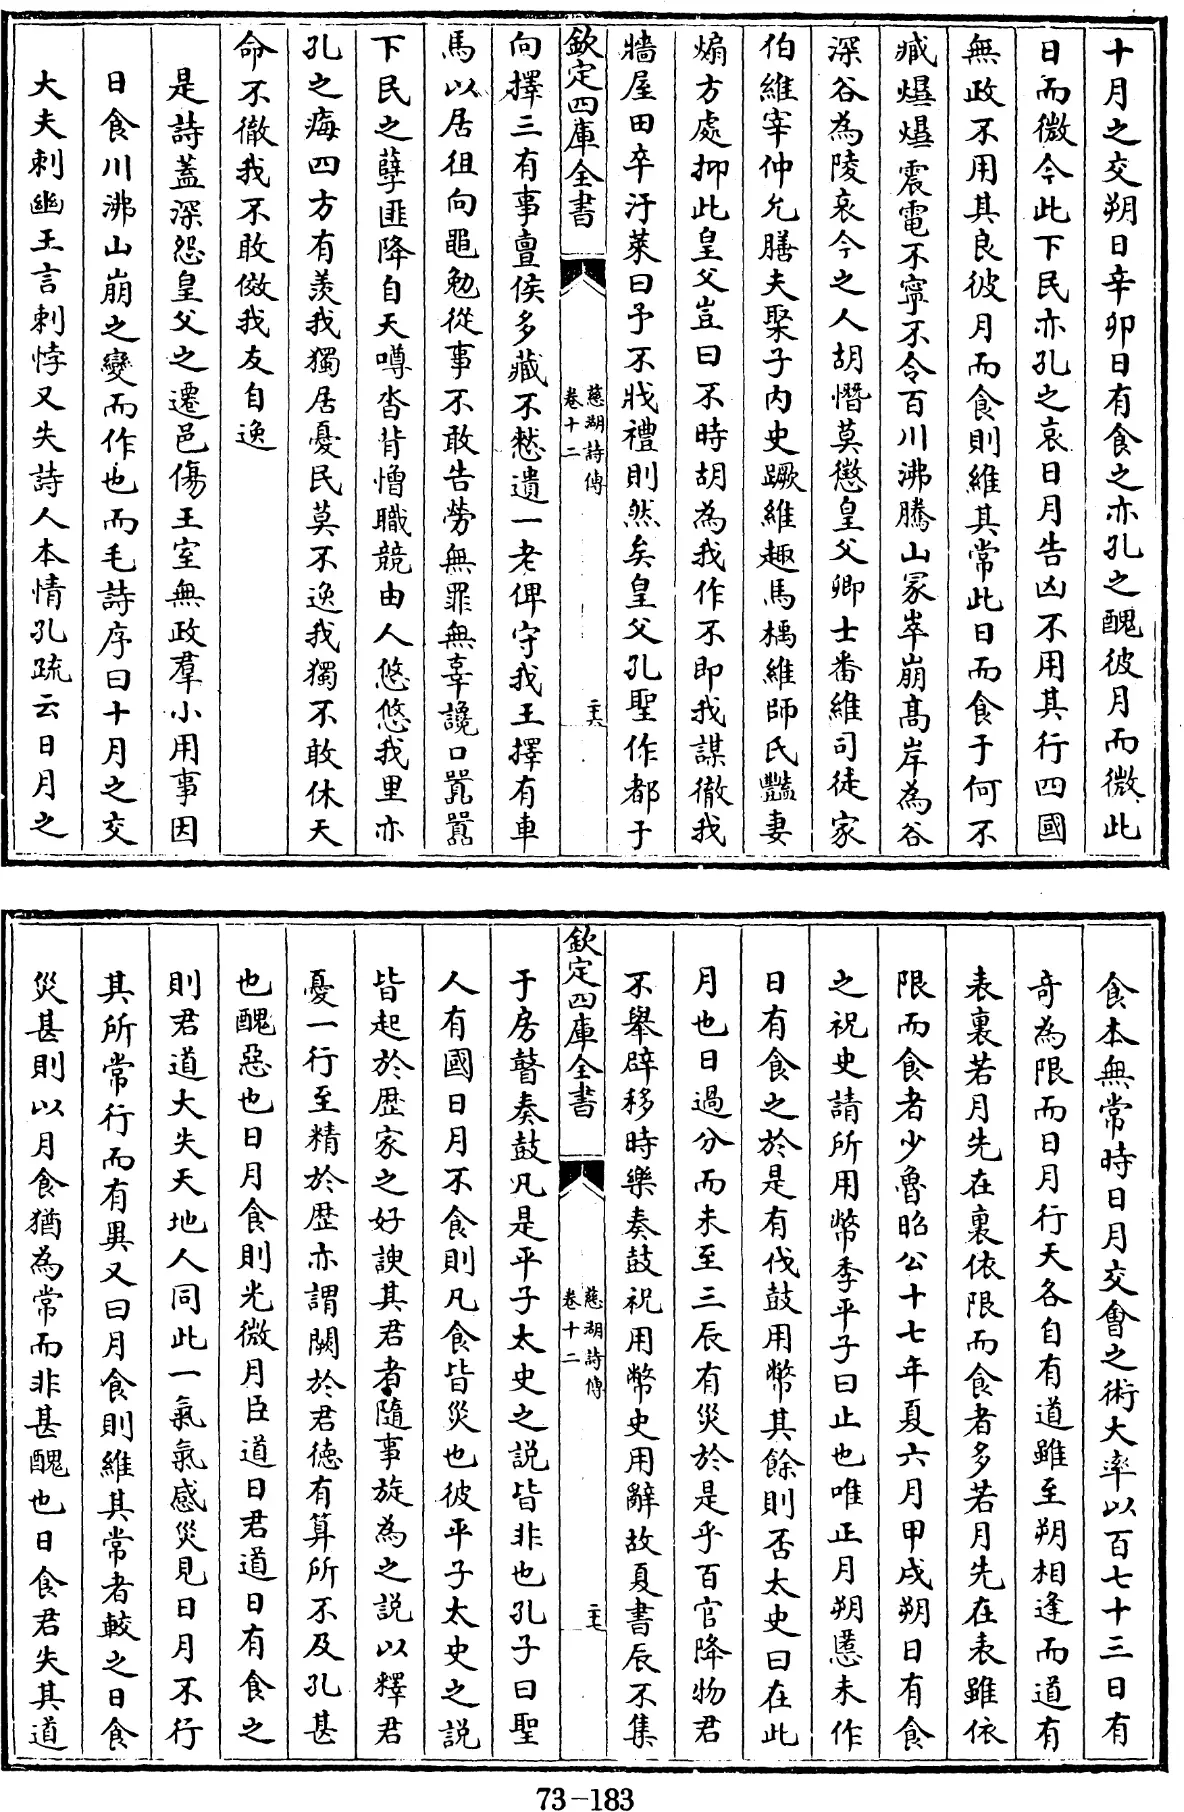 十月之交朔日辛卯日有食之亦孔之醜彼月而微此
日而微今此下民亦孔之哀日月告凶不用其行四國
無政不用其良彼月而食則維其常此日而食于何不
臧爆爆震電不寧不令百川沸騰山冢崒崩髙岸為谷
深谷為陵哀今之人胡憯莫懲皇父卿士番維司徒家
伯維宰仲允膳夫聚子内史蹶維趣馬楀維師氏豔妻
煽方處抑此皇父豈曰不時胡為我作不即我謀徹我
牆屋田卒汙萊曰予不戕禮則然矣皇父孔聖作都于
欽定四庫全書
慈湖詩傳
卷十二
二六
向擇三有事亶侯多藏不憖遺一老俾守我王擇有車
馬以居徂向黽勉從事不敢告勞無罪無辜讒口嚻嚻
下民之孽匪降自天噂沓背憎職競由人悠悠我里亦
孔之痗四方有羨我獨居憂民莫不逸我獨不敢休天
命不徹我不敢傚我友自逸
是詩蓋深怨皇父之遷邑傷王室無政羣小用事因
日食川沸山崩之變而作也而毛詩序曰十月之交
大夫刺幽王言刺悖又失詩人本情孔疏云日月之
食本無常時日月交會之術大率以百七十三日有
奇為限而日月行天各自有道雖至朔相逢而道有
表裏若月先在裏依限而食者多若月先在表雖依
限而食者少魯昭公十七年夏六月甲戌朔日有食
之祝史請所用幣季平子曰止也唯正月朔慝未作
日有食之於是有伐鼓用幣其餘則否太史曰在此
月也日過分而未至三辰有災於是乎百官降物君
不舉辟移時樂奏鼓祝用幣史用辭故夏書辰不集
欽定四庫全書
慈湖詩傳
卷十二
二七
于房瞽奏鼓凡是平子太史之説皆非也孔子曰聖
人有國日月不食則凡食皆災也彼平子太史之説
皆起於歴家之好諛其君者隨事旋為之説以釋君
憂一行至精於歴亦謂闕於君徳有算所不及孔甚
也醜惡也日月食則光微月臣道日君道日有食之
則君道大失天地人同此一氣氣感災見日月不行
其所常行而有異又曰月食則維其常者較之日食
災甚則以月食猶為常而非甚醜也日食君失其道
73-183